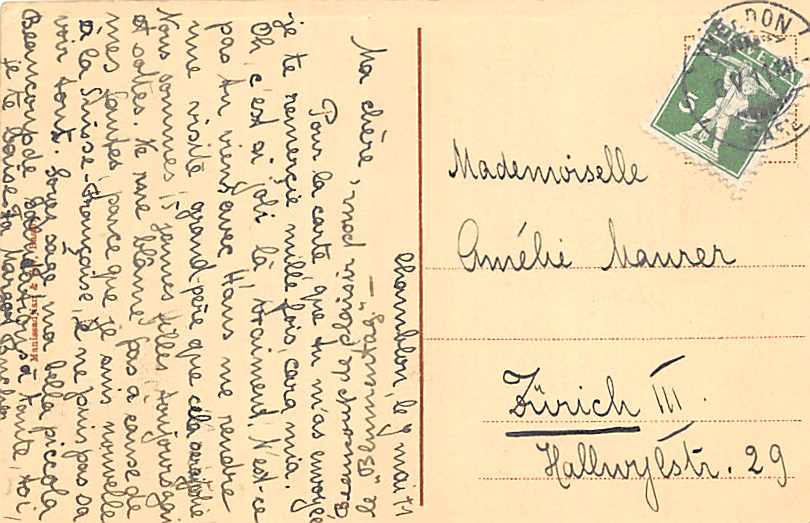 Chamblon, le 9 mai 11
Ma chère,
Pour la carte que tu m'as envoyée
je te remercie mille fois, cara mia.
Oh, c'est si joli là, vraiment. N'est-ce
pas tu viens avec Hans me rendre
une visite, grand-père que cela serait joli
Nous sommes 15 jeunes filles, toujours gai
et sottes. Ne me blâme pas à cause de
mes fautes, parce que je suis nouvelle
à la Suisse-française, je ne puis pas sa
voir tout. Sois sage, ma bella piccola
Beaucoup de salutations à tante, toi,
je te baise Ta Margot
"Blumentag"
Mademoiselle
Amélie Maurer
Zürich III.
Hallwylstr. 29